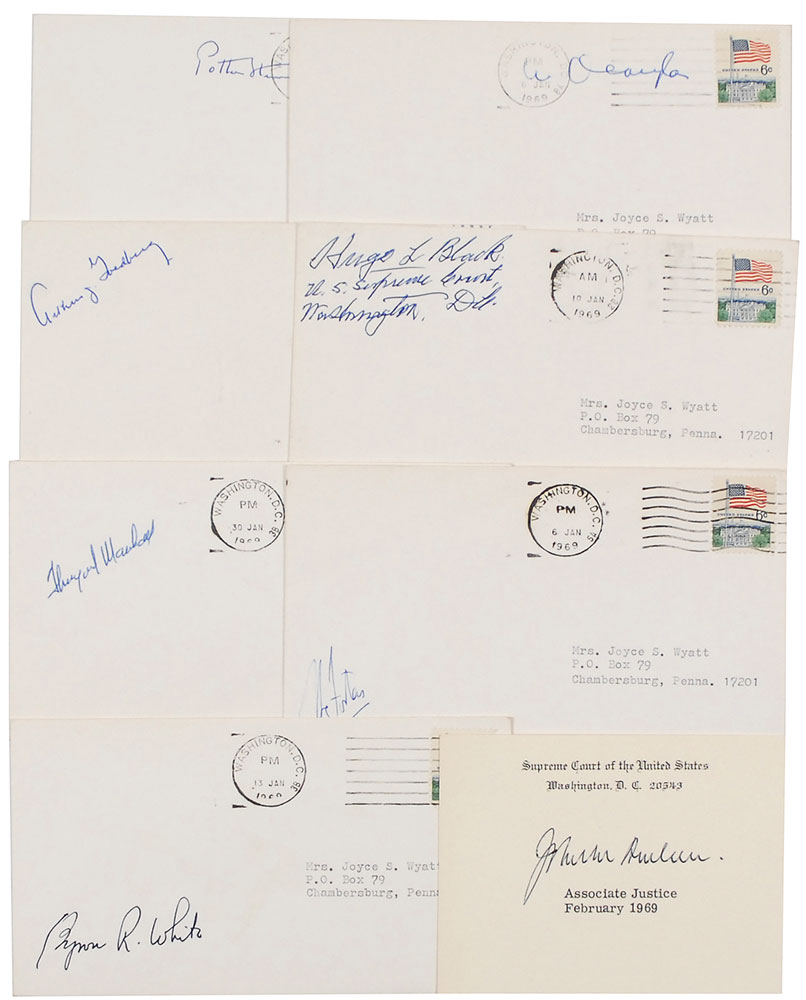 Potter
WASHINGTON, D.C.
PM
6 JAN
1969
Wm O Douglas
UNITED STATES 6c
Mrs. Joyce S. Wyatt
P.O. Box 79
Arthur J Goldberg
Hugo L Black
U. S. Supreme Court,
Washington, D.C.
WASHINGTON, D.C. 
AM
10 JAN
1969
UNITED STATES 6c
Mrs. Joyce S. Wyatt
P.O. Box 79
Chambersburg, Penna. 17201
Thurgood Marshall
WASHINGTON, D.C. 
PM
30 JAN
1969
WASHINGTON, D.C. 
PM
6 JAN
1969
UNITED STATES 6c
Mrs. Joyce S. Wyatt
P.O. Box 79
Chambersburg, Penna. 17201
Abe Fortas
WASHINGTON, D.C. 
PM
13 JAN
1969
Mrs. Joyce S. Wyatt
P.O. Box 79
Chambersburg, Penn
Byron R. White
Supreme Court of the United States
Washington, D. C. 20543
John M Harlan.
Associate Justice
February 1969